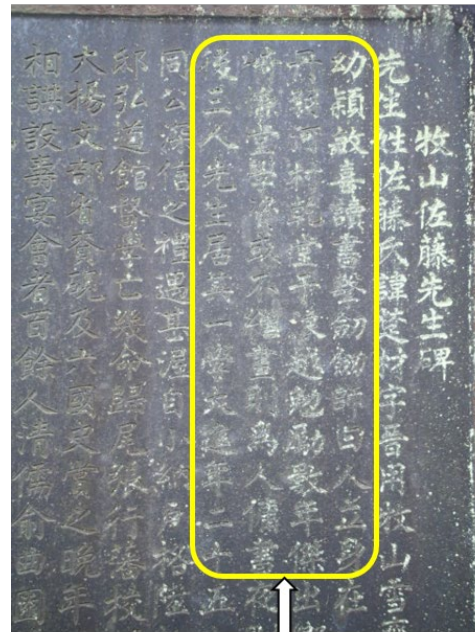 牧山佐藤先生碑
先生姓佐藤氏諱楚材字晋用牧山雪
幼穎敏喜讀書學劒劒師曰人立身在
河村乾堂 勉勵數年傑出
堂學資或不繼晝則為人傭書夜
後三人先生居其一學大進年二十五
同公深信之禮遇甚渥自小納戸格陞
邸弘道館督學亡幾命歸尾張行藩校
大揚文部省賚硯及六國史賞之晩年
相謀設壽宴會者百餘人清儒俞曲園